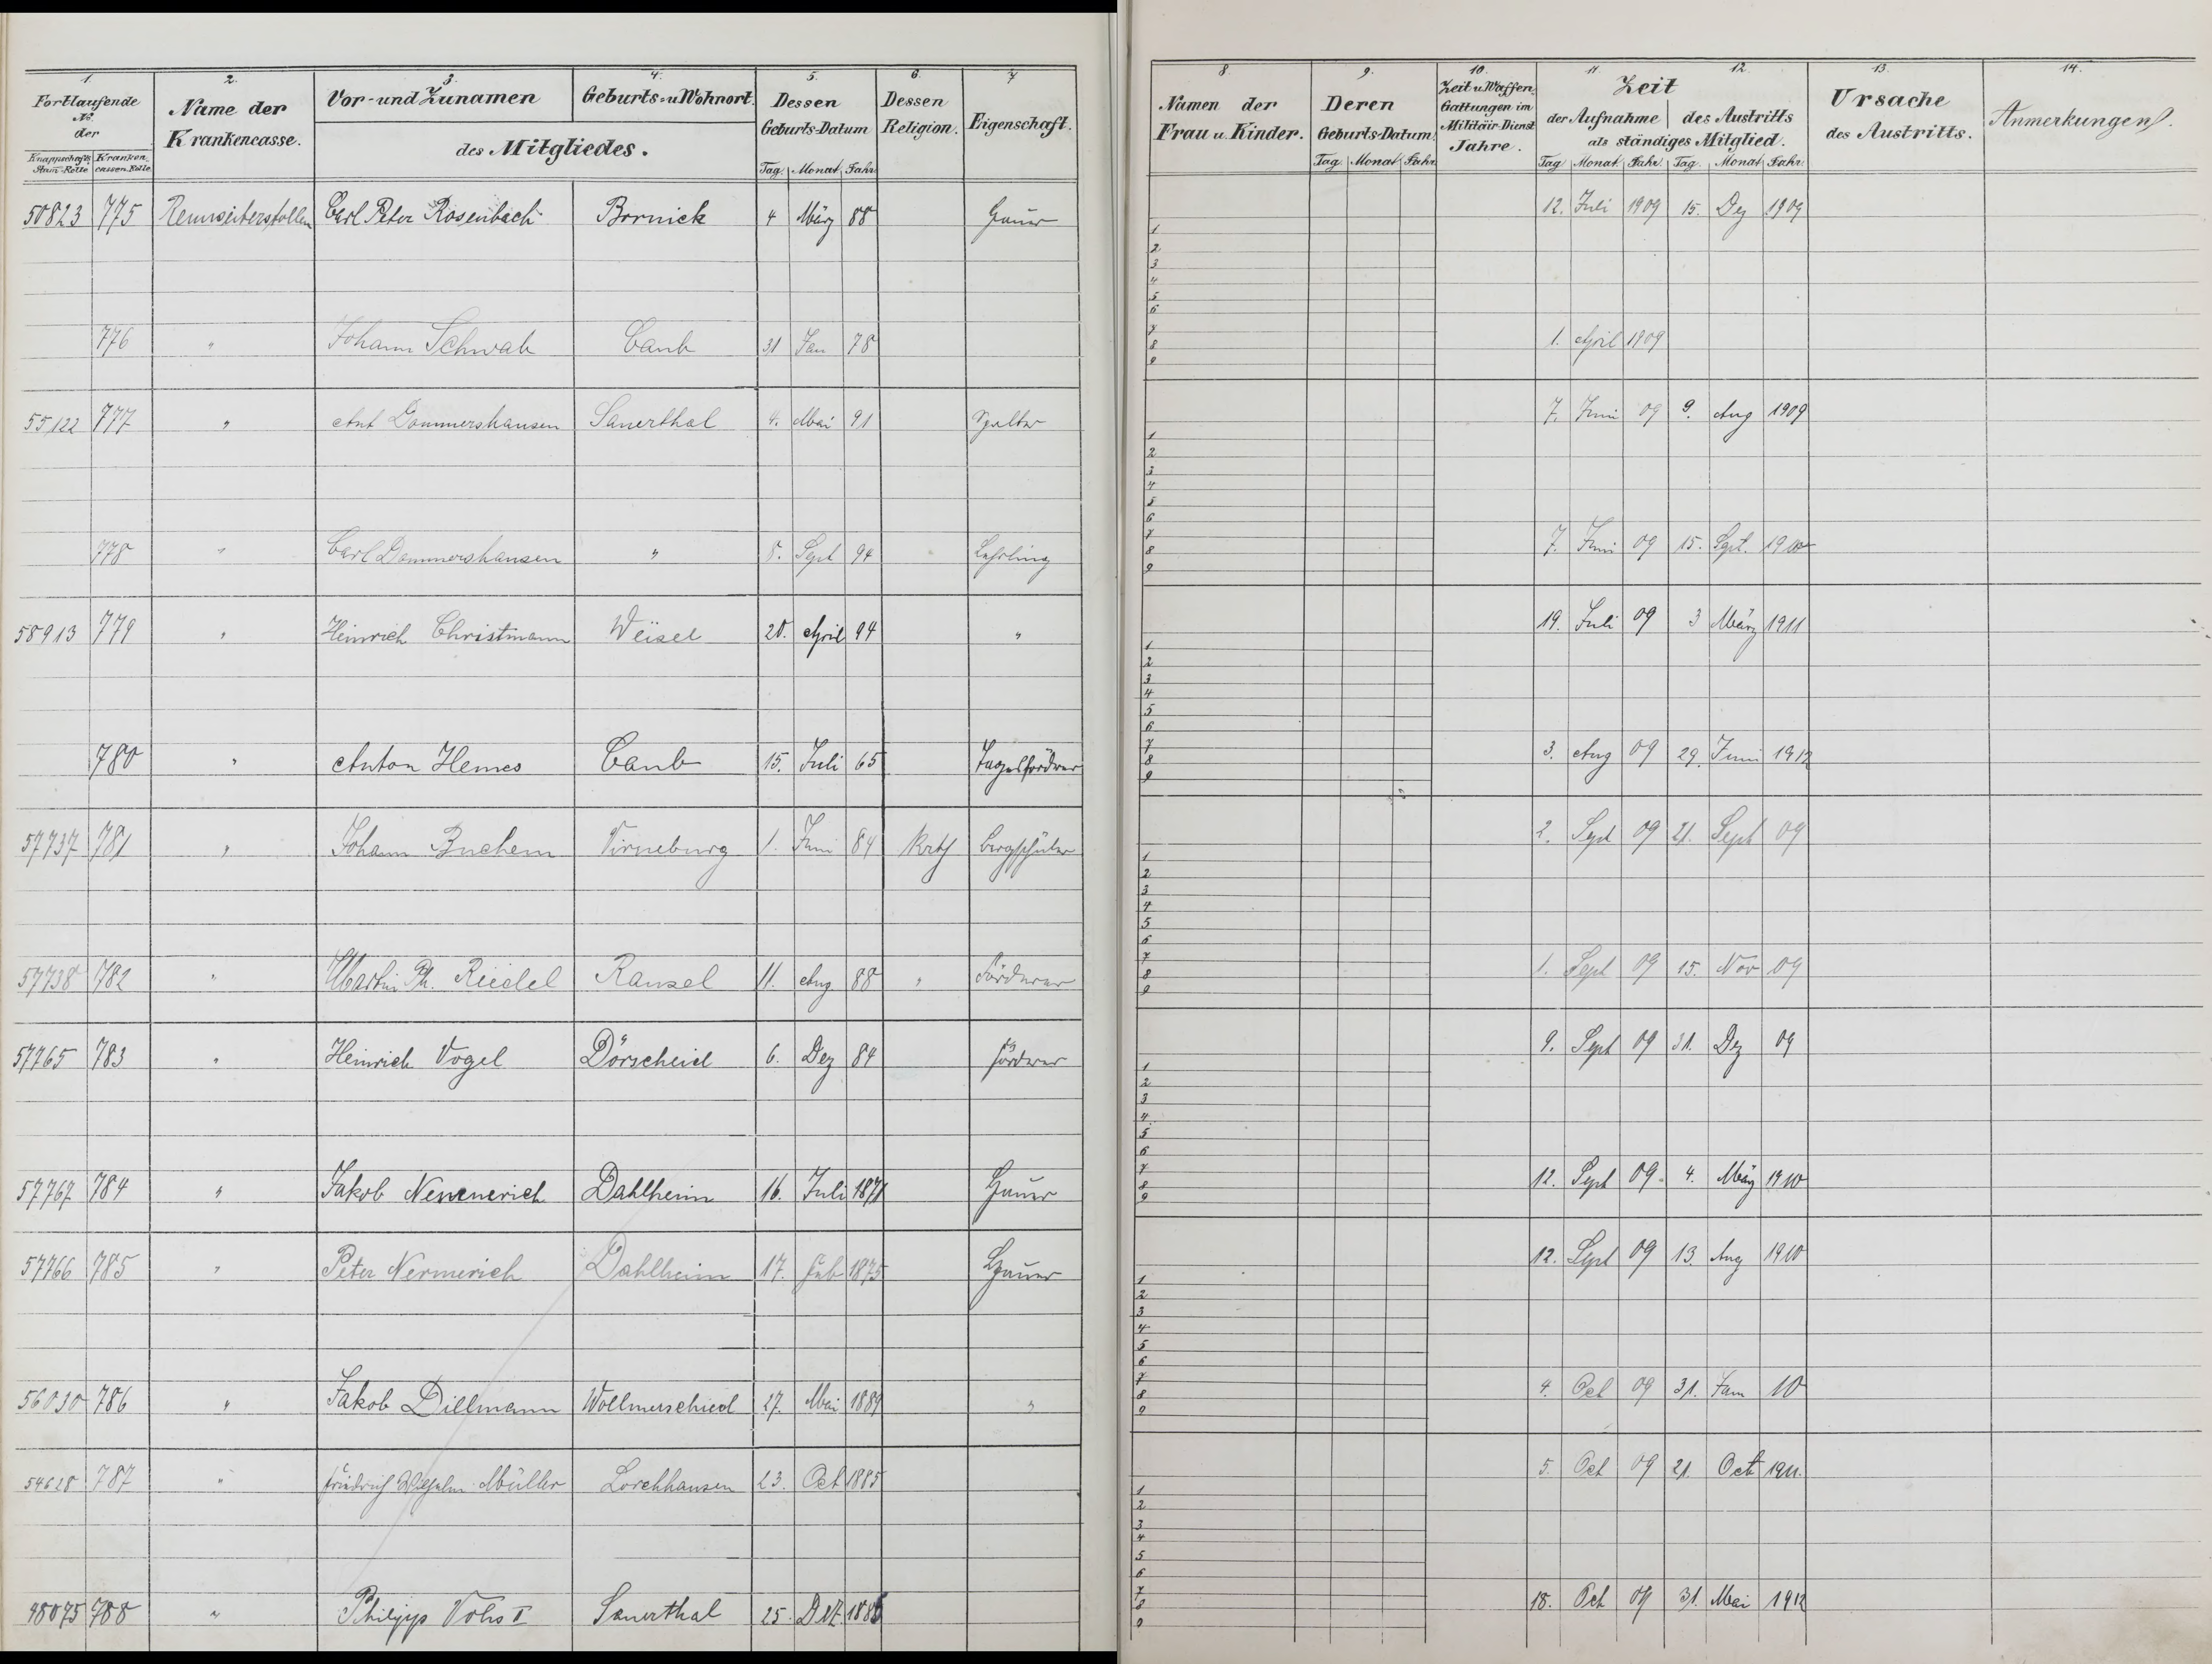 1. 2. 3. 4. 5. 6. 7
Fortlaufende No. der
Knappschafts Stam-Rolle Kranken cassen-Rolle
Name der Krankencasse.
Vor- und Zunamen Geburts- u Wohnort.
des Mitgliedes.
Dessen Geburts-Datum
Tag. Monat Jahr
Dessen Religion.
Eigenschaft.
50823 775 Carl Peter Rosenbach Bornick 4 März 88 Hauer
776 " Johann Schwab Caub 31 Jan 78
55122 777 " Ant Dommershausen Sauerthal 4. Mai 91 Spalter
778 " Carl Dommershausen " 8. Sept 94 Lehrling
58913 779 " Heinrich Christmann Weisel 20. April 94 "
780 " Anton Hemes Caub 15. Juli 65 Tagesförderer
57737 781 " Johann Buchem Virneburg 1. Juni 84 Kath Bergschüler
57738 782 " Martin Ph. Riedel Ransel 11. Aug. 88 " Förderer
57765 783 " Heinrich Vogel Dörscheid 6. Dez 84 Förderer
57767 784 " Jakob Dahlheim 16. Juli 1871 Hauer
57766 785 " Peter Nermerich Dahlheim 17. Feb 1875 Hauer
56030 786 " Jakob Dillmann Wollmerschied 27. Mai 1889 "
54628 787 " Friedrich Wilhelm Müller Lorchhausen 23. Oct 1885
48075 788 " Philipp Vohs II Sauerthal 25. 
8. 9. 10. 11. 12. 13. 14.
Namen der Frau u. Kinder.
Deren Geburts-Datum
Tag. Monat Jahr
Zeit u Waffen Gattungen im Militäir-Dienst Jahre.
Zeit
der Aufnahme des Austritts
als ständiges Mitglied.
Tag Monat Jahr. Tag. Monat Jahr
Ursache des Austritts.
Anmerkungen.
12. Juli 1909 15. Dez 1909
1
2
3
4
5
6
7
1. April 1909
8
9
7. Juni 09 9. Aug 1909
1
2
3
4
5
6
7
7. Juni 09 15. Sept. 1910
8
9
19. Juli 09 3 März 1911
1
2
3
4
5
6
7
3. Aug 09 29. Juni 1912
8
9
2. Sept 09 21. Sept 09
1
2
3
4
5
6
7
1. Sept 09 15. Nov 09
8
9
9. Sept 09 31. Dez 09
1
2
3
4
5
6
7
12. Sept 09. 4. März 1910
8
9
12. Sept 09 13. Aug 1910
1
2
3
4
5
6
7
4. Oct 09 31. Jan 10
8
9
5. Oct 09 21. Oct 1911.
1
2
3
4
5
6
7
18. Oct 09 31. Mai 1912
8
9